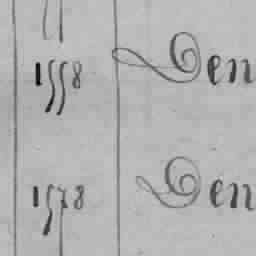 1558 Den
1578 Den